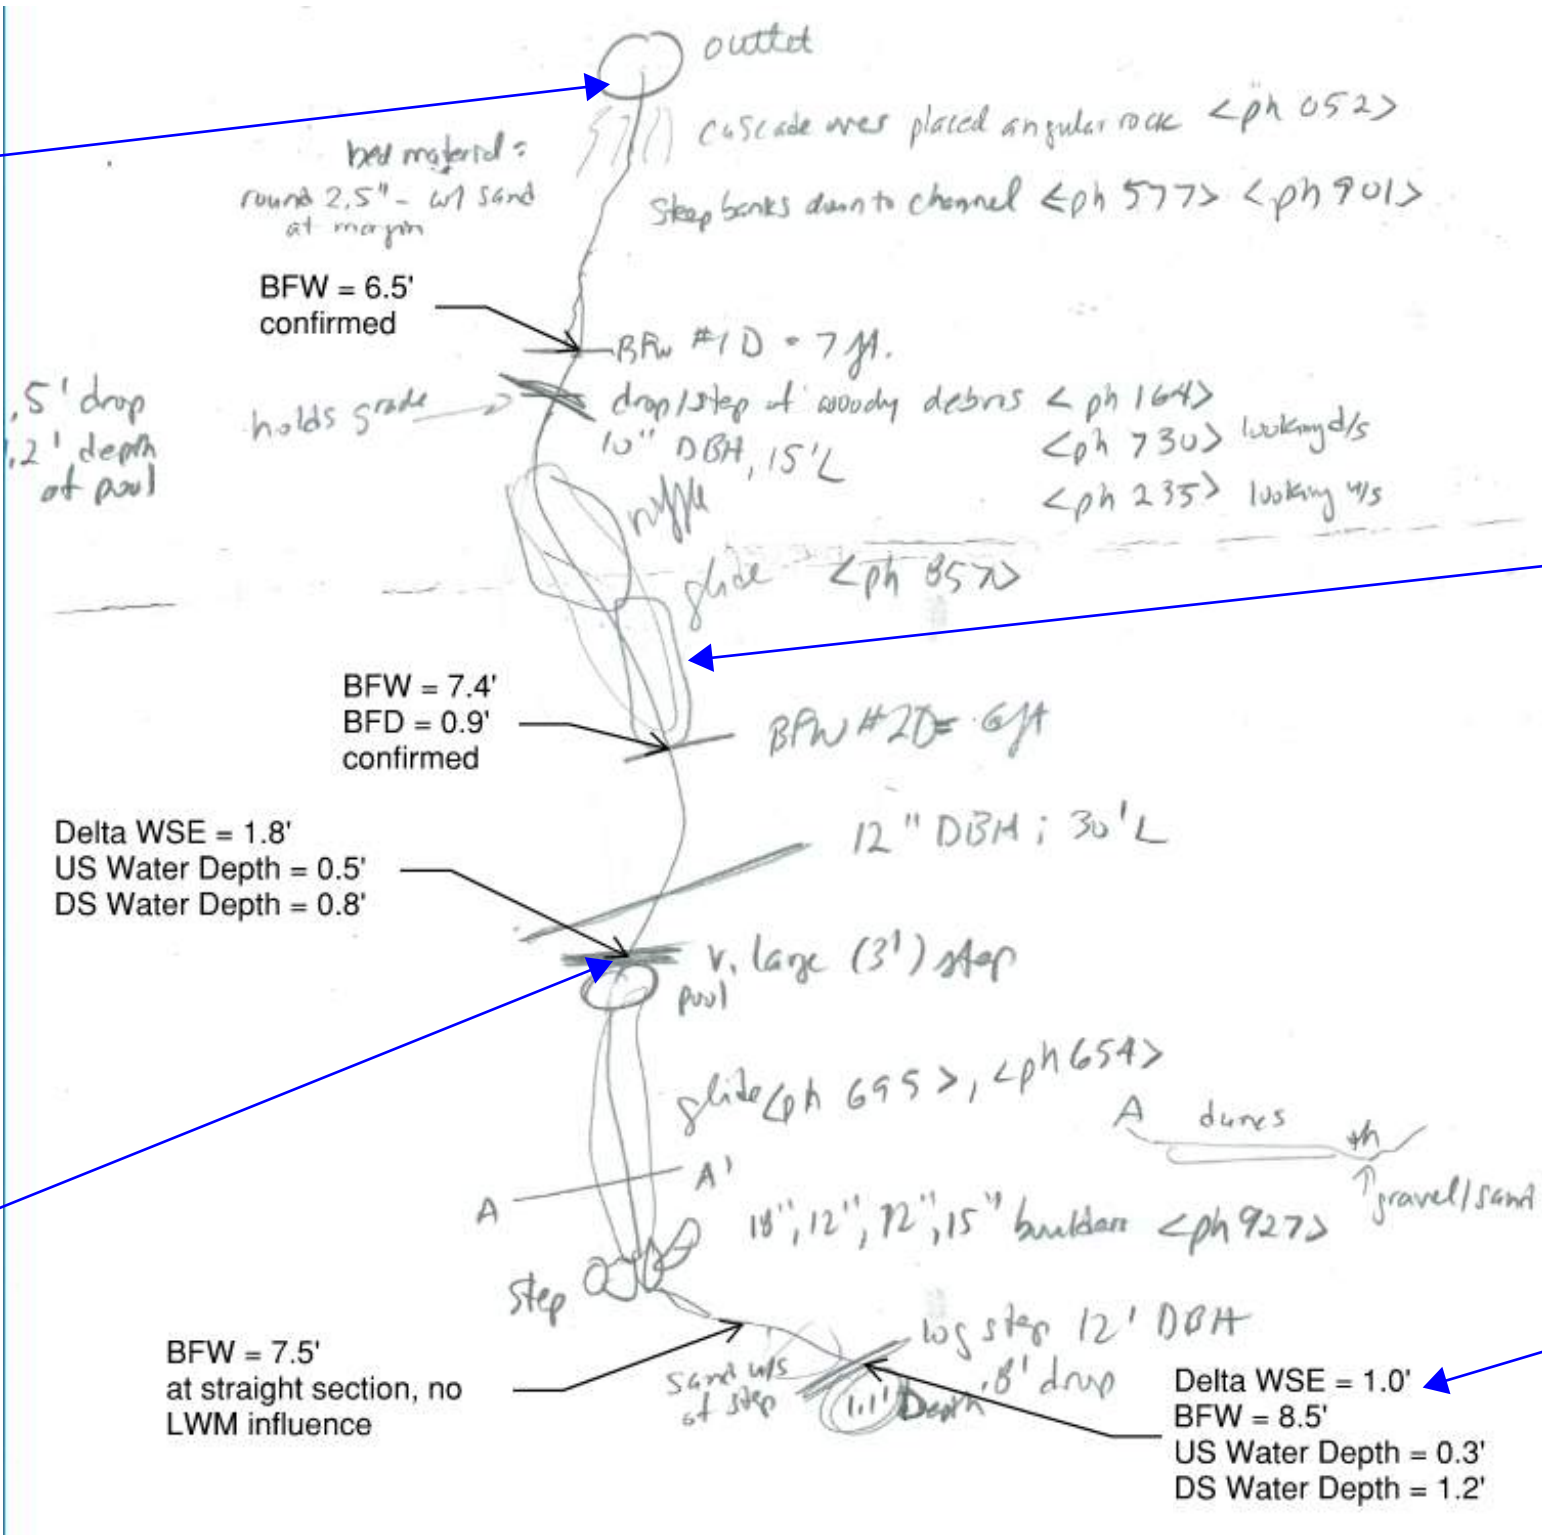 outlet
cascade over placed angular rock <ph 052>
bed material =
round 2.5" - w/ sand
at margin
steep banks down to channel <ph 577> <ph 901>
BFW = 6.5'
confirmed
BFW #1 D = 7 ft.
.5' drop
1.2' depth
at pool
holds grade
drop/step of woody debris <ph 164>
10" DBH, 15'L
<ph 730> looking d/s
<ph 235> looking u/s
riffle
glide <ph 857>
BFW = 7.4'
BFD = 0.9'
confirmed
BFW #2D = 6 ft
12" DBH; 30'L
Delta WSE = 1.8'
US Water Depth = 0.5'
DS Water Depth = 0.8'
v. large (3') step
pool
glide <ph 695>, <ph 654>
A dunes th
gravel/sand
A A'
18", 12", 12", 15" boulders <ph 927>
step
log step 12' DBH
.8' drop
sand u/s
of step
1.1' Depth
BFW = 7.5'
at straight section, no
LWM influence
Delta WSE = 1.0'
BFW = 8.5'
US Water Depth = 0.3'
DS Water Depth = 1.2'